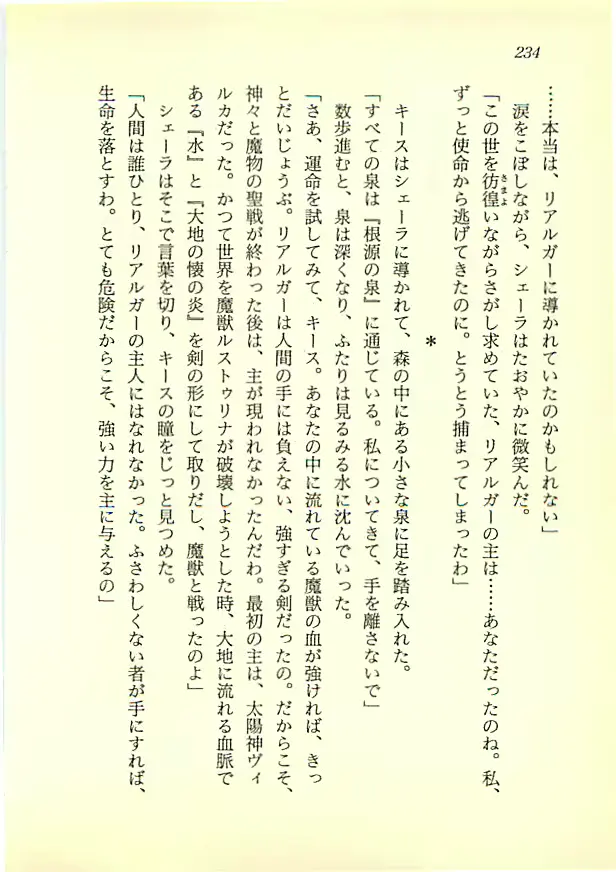 234
……本当は、リアルガーに導かれていたのかもしれない」
涙をこぼしながら、シェーラはたおやかに微笑んだ。
「この世を彷徨いながらさがし求めていた、リアルガーの主は……あなただったのね。私、
ずっと使命から逃げてきたのに。とうとう捕まってしまったわ」
*
キースはシェーラに導かれて、森の中にある小さな泉に足を踏み入れた。
「すべての泉は『根源の泉』に通じている。私についてきて、手を離さないで」
数歩進むと、泉は深くなり、ふたりは見るみる水に沈んでいった。
「さあ、運命を試してみて、キース。あなたの中に流れている魔獣の血が強ければ、きっ
とだいじょうぶ。リアルガーは人間の手には負えない、強すぎる剣だったの。だからこそ、
神々と魔物の聖戦が終わった後は、主が現われなかったんだわ。最初の主は、太陽神ヴィ
ルカだった。かつて世界を魔獣ルストゥリナが破壊しようとした時、大地に流れる血脈で
ある『水』と『大地の懐の炎』を剣の形にして取りだし、魔獣と戦ったのよ」
シェーラはそこで言葉を切り、キースの瞳をじっと見つめた。
「人間は誰ひとり、リアルガーの主人にはなれなかった。ふさわしくない者が手にすれば、
生命を落とすわ。とても危険だからこそ、強い力を主に与えるの」